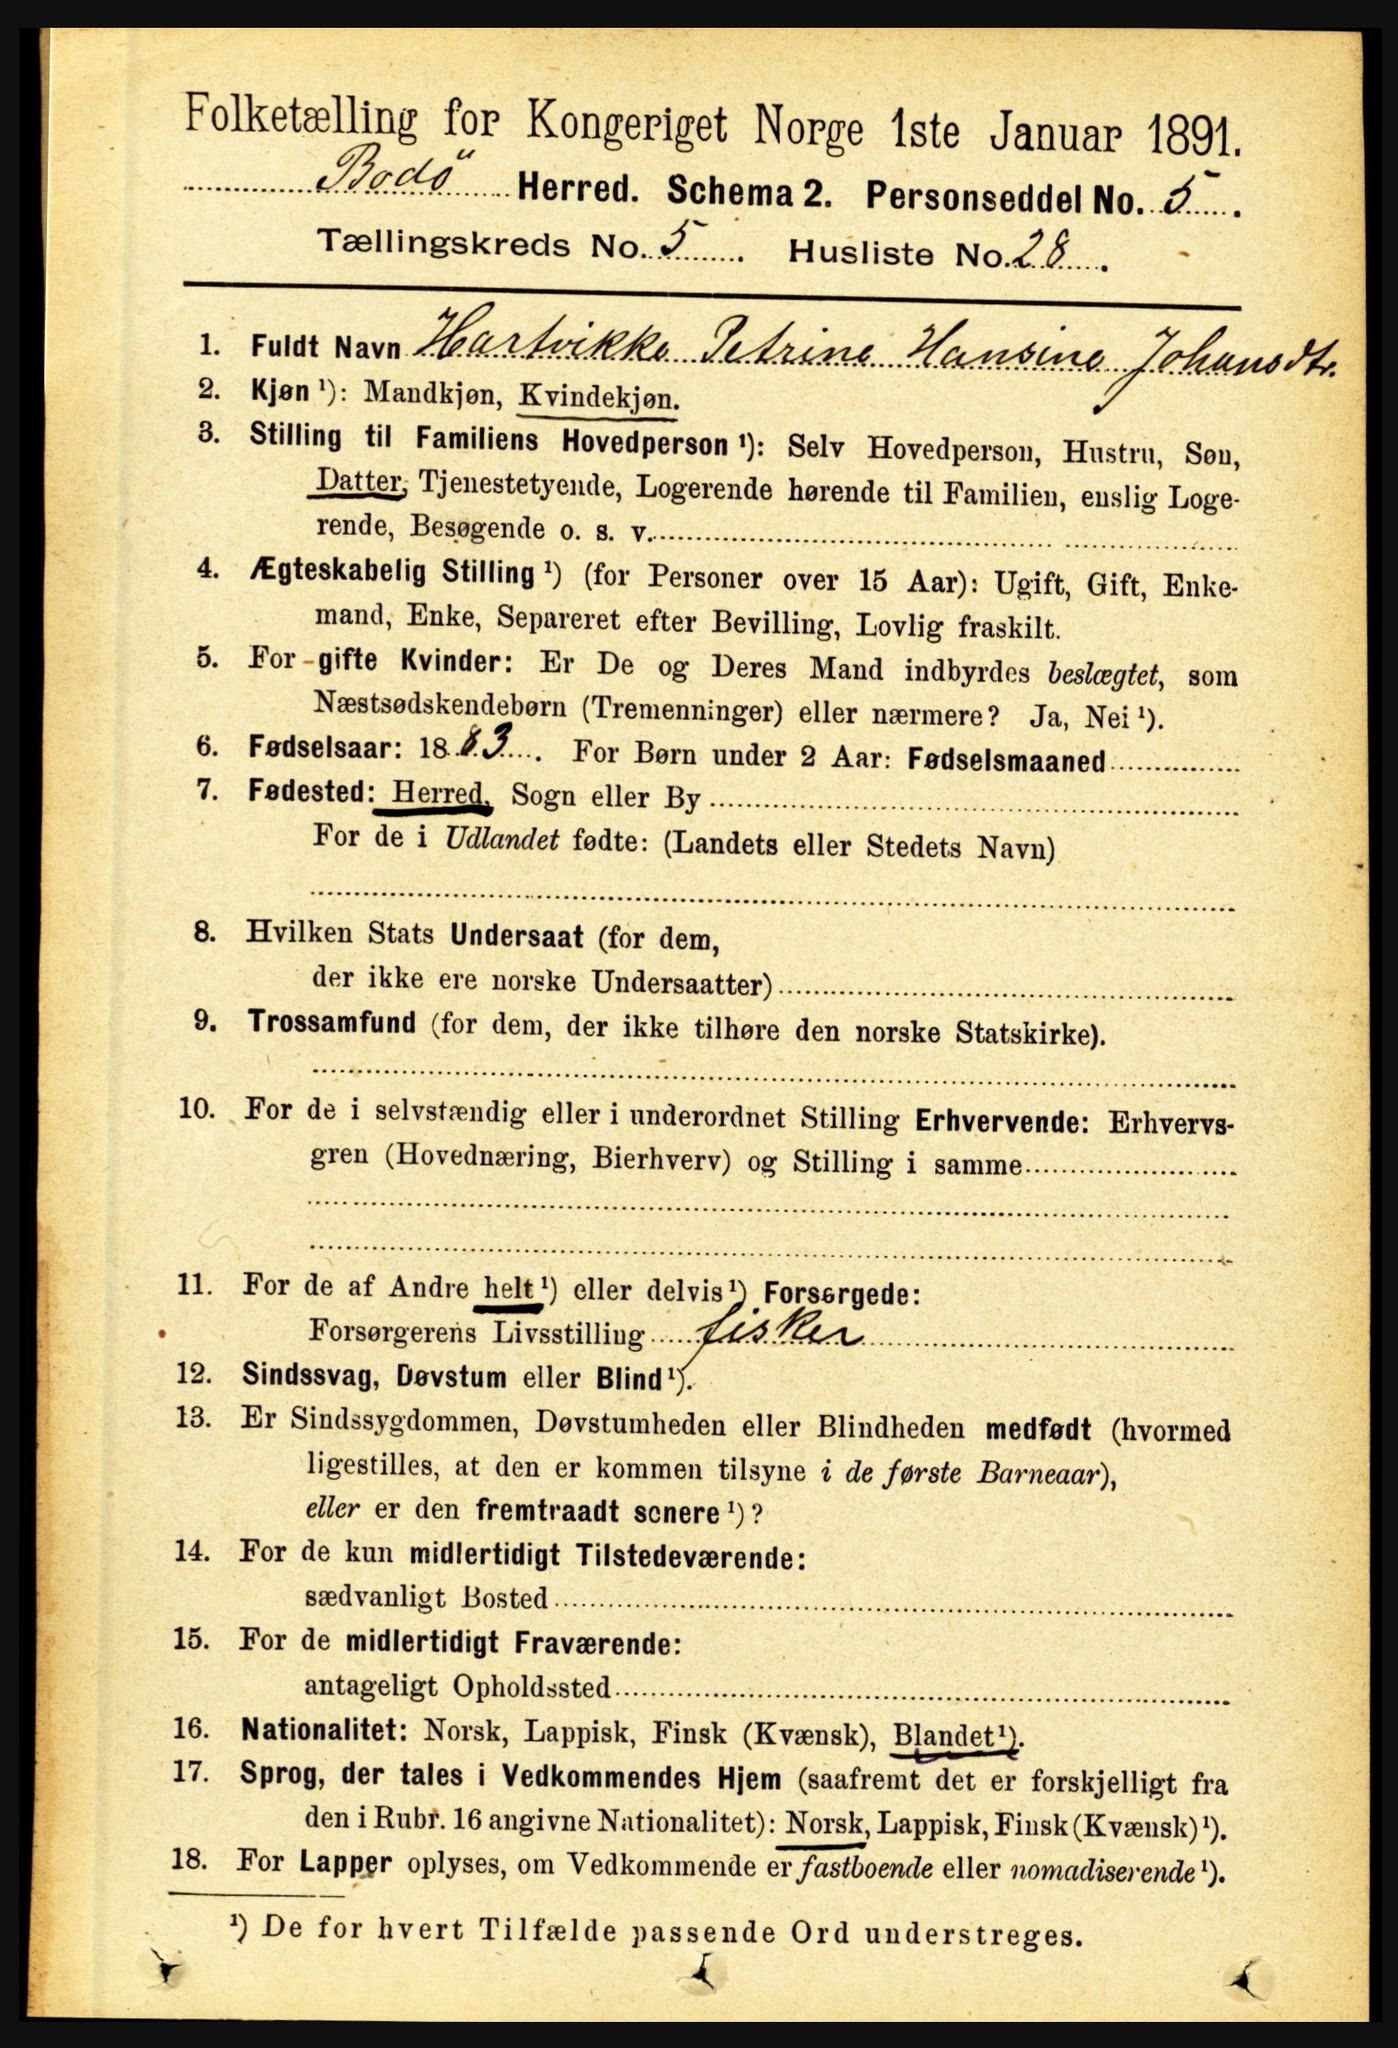 Folketælling for Kongeriget Norge 1ste Januar 1891.
Bodö Herred. Schema 2. Personseddel No. 5.
Tællingskreds No. 5. Husliste No. 28.
1. Fuldt Navn Hartvikke Petrine Hansine Johansdtr.
2. Kjøn ¹): Mandkjøn, Kvindekjøn.
3. Stilling til Familiens Hovedperson ¹): Selv Hovedperson, Hustru, Søn,
Datter, Tjenestetyende, Logerende hørende til Familien, enslig Loge-
rende, Besøgende o. s. v.
4. Ægteskabelig Stilling ¹) (for Personer over 15 Aar): Ugift, Gift, Enke-
mand, Enke, Separeret efter Bevilling, Lovlig fraskilt.
5. For gifte Kvinder: Er De og Deres Mand indbyrdes beslægtet, som
Næstsødskendebørn (Tremenninger) eller nærmere? Ja, Nei ¹).
6. Fødselsaar: 1883. For Børn under 2 Aar: Fødselsmaaned
7. Fødested: Herred, Sogn eller By
For de i Udlandet fødte: (Landets eller Stedets Navn)
8. Hvilken Stats Undersaat (for dem,
der ikke ere norske Undersaatter)
9. Trossamfund (for dem, der ikke tilhøre den norske Statskirke).
10. For de i selvstændig eller i underordnet Stilling Erhvervende: Erhvervs-
gren (Hovednæring, Bierhverv) og Stilling i samme
11. For de af Andre helt ¹) eller delvis ¹) Forsørgede:
Forsørgerens Livsstilling fisker
12. Sindssvag, Døvstum eller Blind ¹).
13. Er Sindssygdommen, Døvstumheden eller Blindheden medfødt (hvormed
ligestilles, at den er kommen tilsyne i de første Barneaar),
eller er den fremtraadt senere ¹)?
14. For de kun midlertidigt Tilstedeværende:
sædvanligt Bosted
15. For de midlertidigt Fraværende:
antageligt Opholdssted
16. Nationalitet: Norsk, Lappisk, Finsk (Kvænsk), Blandet ¹).
17. Sprog, der tales i Vedkommendes Hjem (saafremt det er forskjelligt fra
den i Rubr. 16 angivne Nationalitet): Norsk, Lappisk, Finsk (Kvænsk) ¹).
18. For Lapper oplyses, om Vedkommende er fastboende eller nomadiserende ¹).
¹) De for hvert Tilfælde passende Ord understreges.